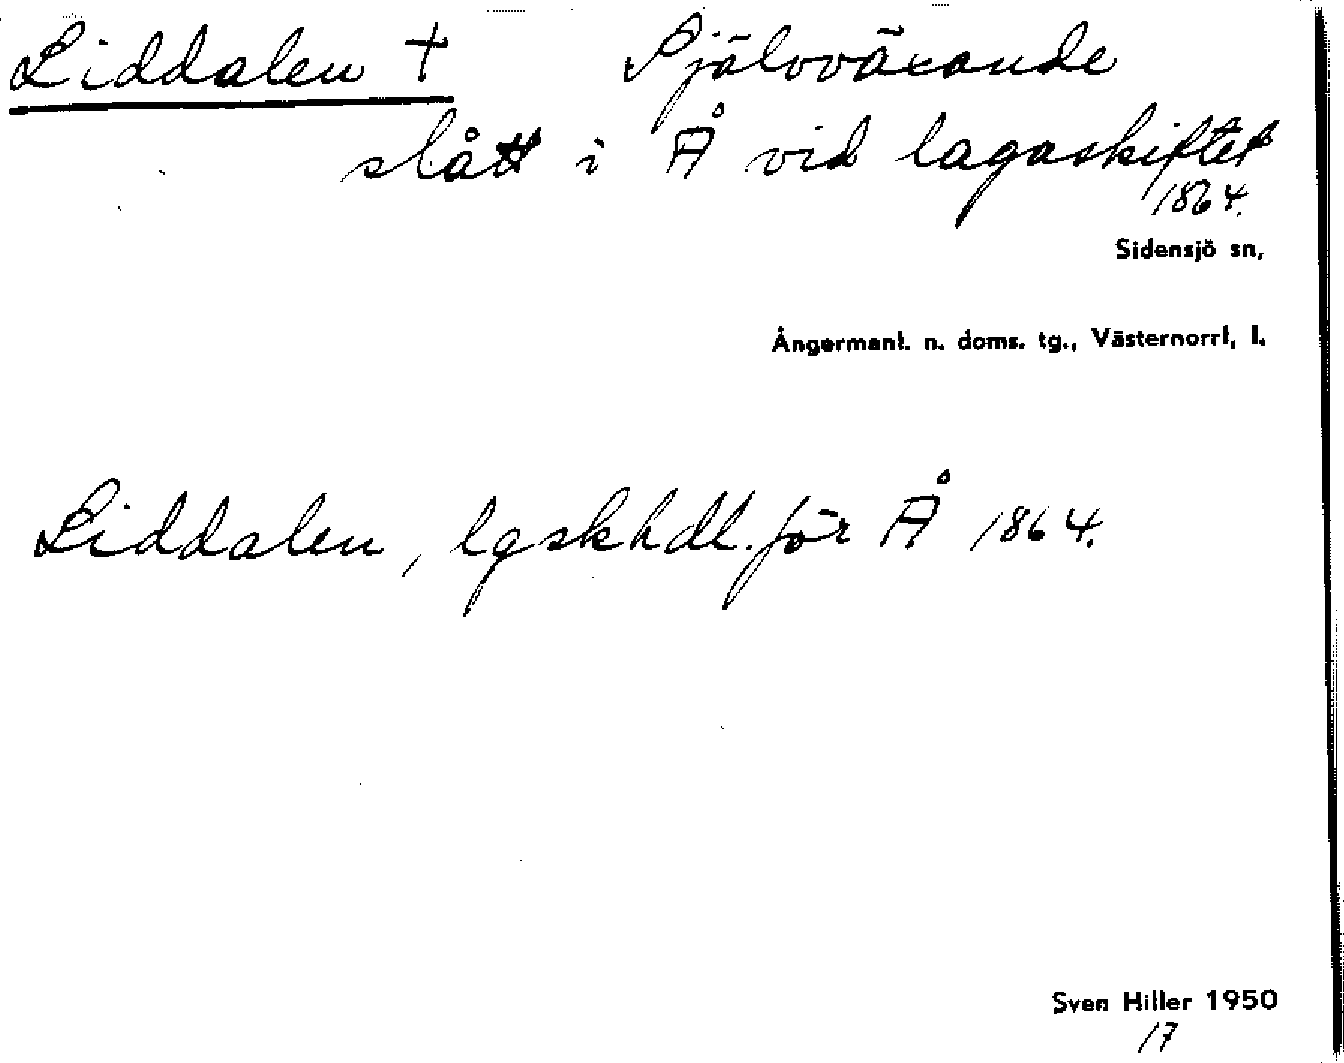 Liddalen † Självväxande
slått i Å vid lagaskiftet
1864.
Sidensjö sn,
Ångermanl. n. doms. tg., Västernorrl, l.
Liddalen, lgskhdl. för Å 1864.
Sven Hiller 1950
17